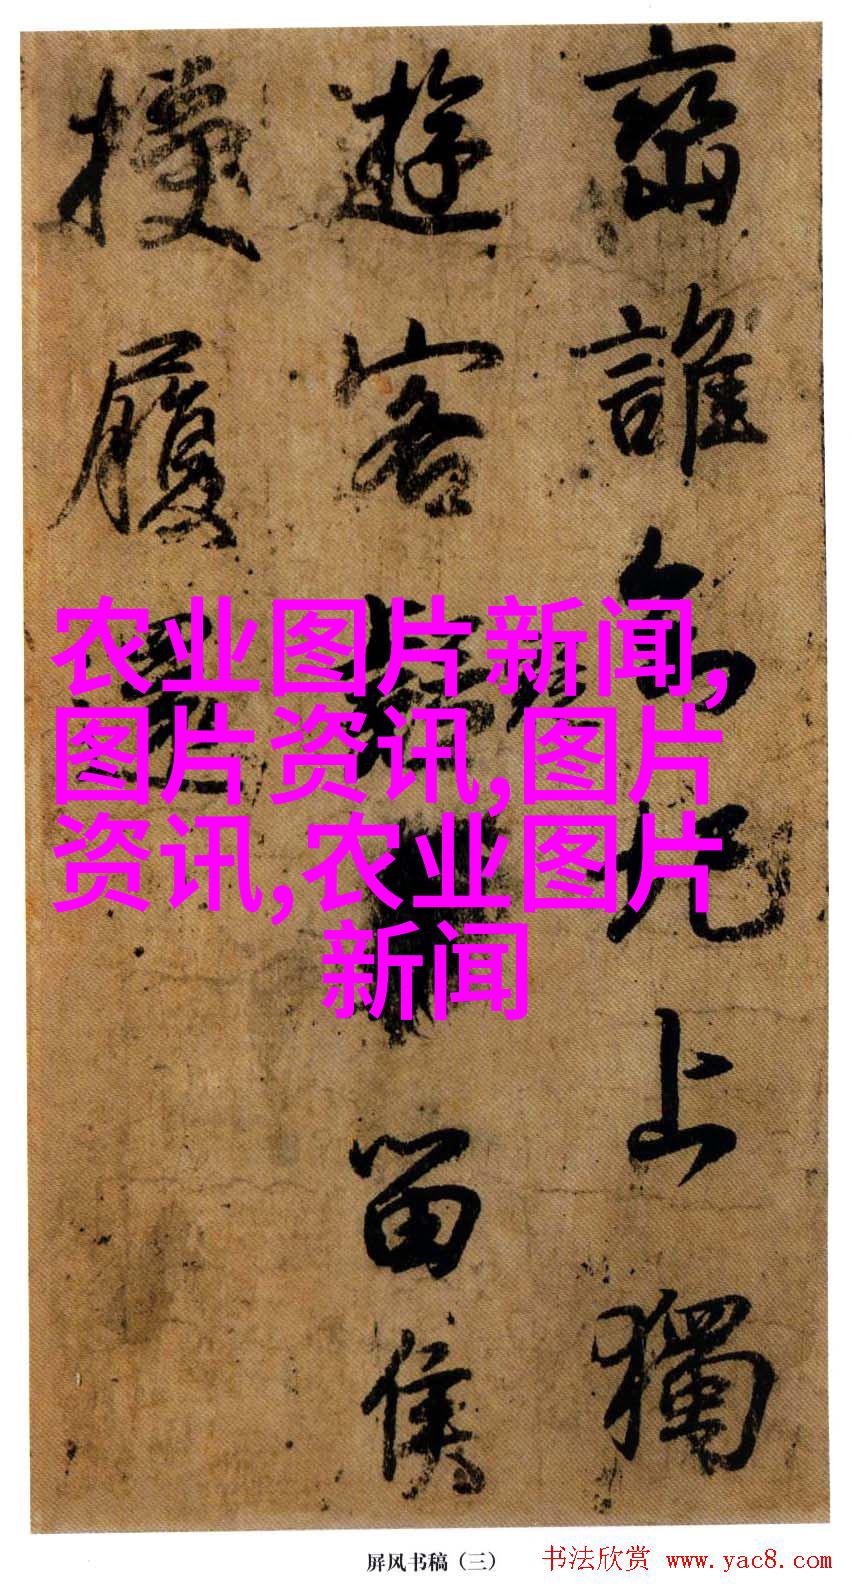 誰圯上獨
遊客留侯
履
农业图片新闻,
图片资讯,图片
资讯,农业图片
新闻
屏风书稿（三）
书法欣赏 www.yac8.com